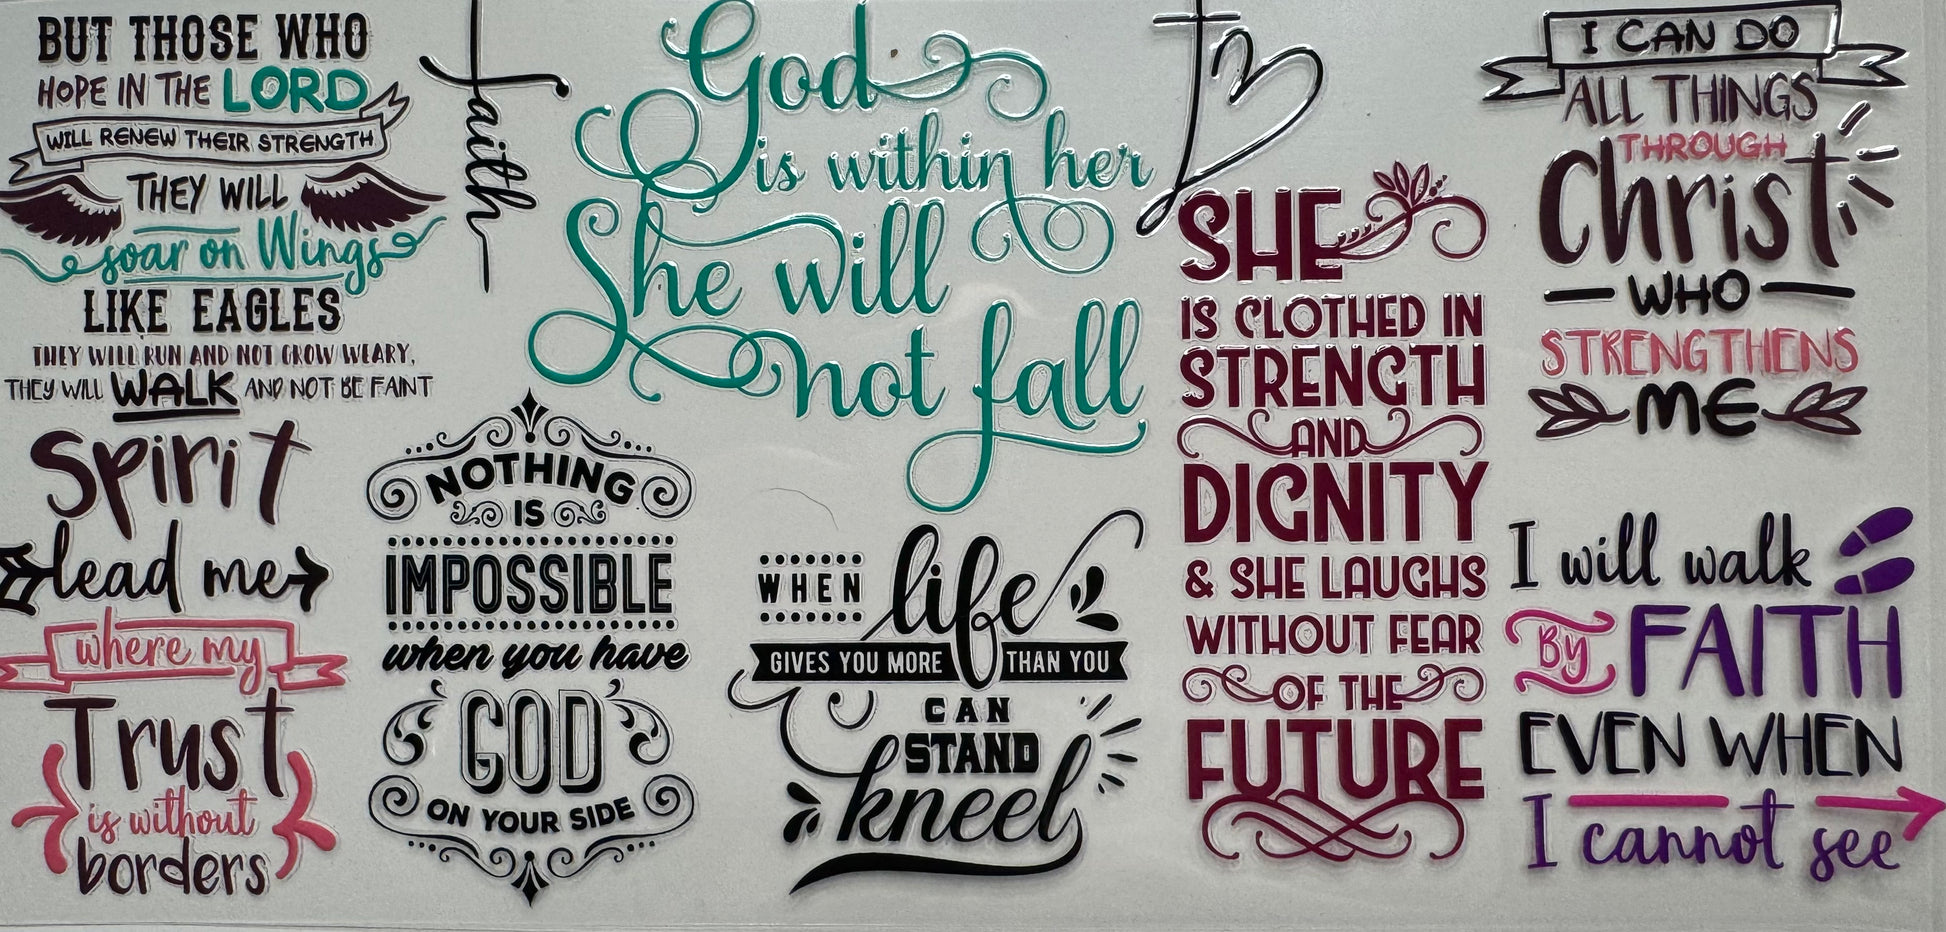 BUT THOSE WHO
HOPE IN THE LORD
WILL RENEW THEIR STRENGTH
THEY WILL
soar on Wings
LIKE EAGLES
THEY WILL RUN AND NOT GROW WEARY,
THEY WILL WALK AND NOT BE FAINT
faith
God
is within her
She will
not fall
SHE
IS CLOTHED IN
STRENGTH
AND
DIGNITY
& SHE LAUGHS
WITHOUT FEAR
OF THE
FUTURE
I CAN DO
ALL THINGS
THROUGH
Christ
WHO
STRENGTHENS
ME
Spirit
lead me
where my
Trust
is without
borders
NOTHING
IS
IMPOSSIBLE
when you have
GOD
ON YOUR SIDE
WHEN life
GIVES YOU MORE THAN YOU
CAN
STAND
kneel
I will walk
By FAITH
EVEN WHEN
I cannot see